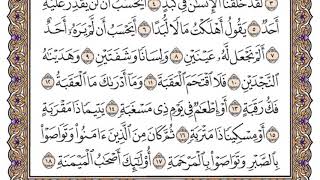 ٣ لَقَدْ خَلَقْنَا الْإِنسَانَ فِي كَبَدٍ ٤ أَيَحْسَبُ أَن لَّن يَقْدِرَ عَلَيْهِ
أَحَدٌ ٥ يَقُولُ أَهْلَكْتُ مَالًا لُّبَدًا ٦ أَيَحْسَبُ أَن لَّمْ يَرَهُ أَحَدٌ
٧ أَلَمْ نَجْعَل لَّهُ عَيْنَيْنِ ٨ وَلِسَانًا وَشَفَتَيْنِ ٩ وَهَدَيْنَاهُ
النَّجْدَيْنِ ١٠ فَلَا اقْتَحَمَ الْعَقَبَةَ ١١ وَمَا أَدْرَاكَ مَا الْعَقَبَةُ ١٢
فَكُّ رَقَبَةٍ ١٣ أَوْ إِطْعَامٌ فِي يَوْمٍ ذِي مَسْغَبَةٍ ١٤ يَتِيمًا ذَا مَقْرَبَةٍ
١٥ أَوْ مِسْكِينًا ذَا مَتْرَبَةٍ ١٦ ثُمَّ كَانَ مِنَ الَّذِينَ آمَنُوا وَتَوَاصَوْا
بِالصَّبْرِ وَتَوَاصَوْا بِالْمَرْحَمَةِ ١٧ أُولَٰئِكَ أَصْحَابُ الْمَيْمَنَةِ ١٨